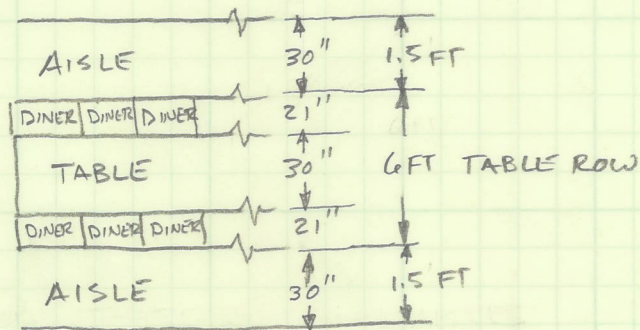 AISLE 30" 1.5 FT
DINER DINER DINER 21"
TABLE 30" 6FT TABLE ROW
DINER DINER DINER 21"
AISLE 30" 1.5 FT